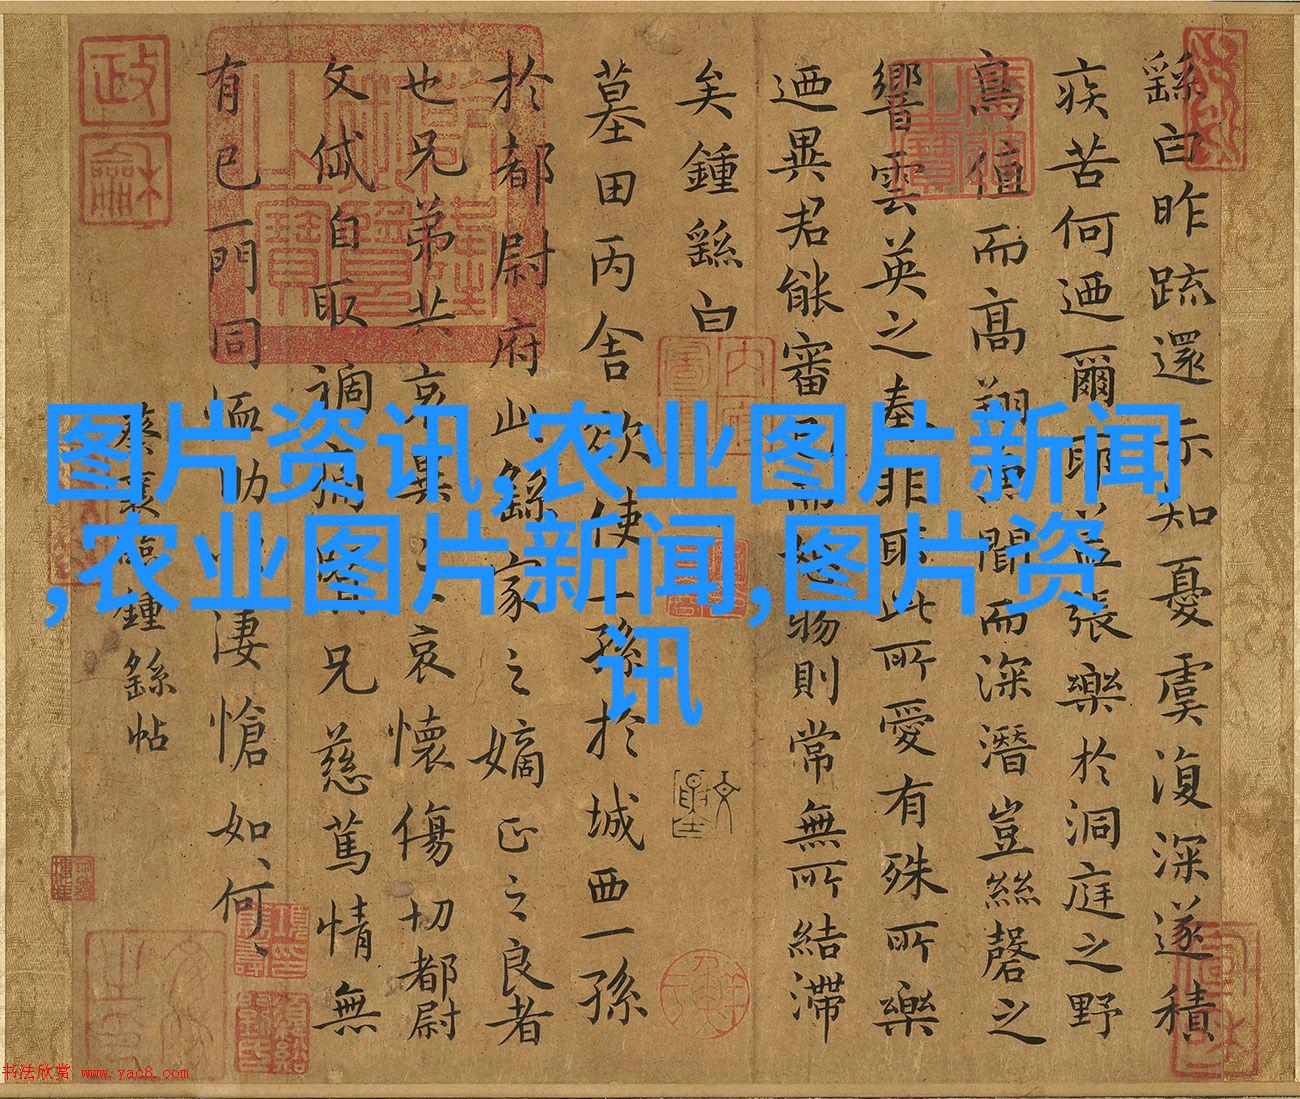 繇白昨疏還示知憂虞復深遂積
疾苦何迺爾耶蓋張樂於洞庭之野
鳥值而高翔魚聞而深潛豈絲磬之
響雲英之奏非耶此所愛有殊所樂
迺異君能審己而恕物則常無所結滯
矣鍾繇白
墓田丙舍欲使一孫於城西一孫
於都尉府此繇家之嫡正之良者
也兄弟共哀異哀懷傷切都尉
文岱自取禍痛兄慈篤情無
有已一門同恤助悽愴如何
蔡襄臨鍾繇帖
政和
图片资讯,农业图片新闻
,农业图片新闻,图片资
讯
书法欣赏 www.yac8.com